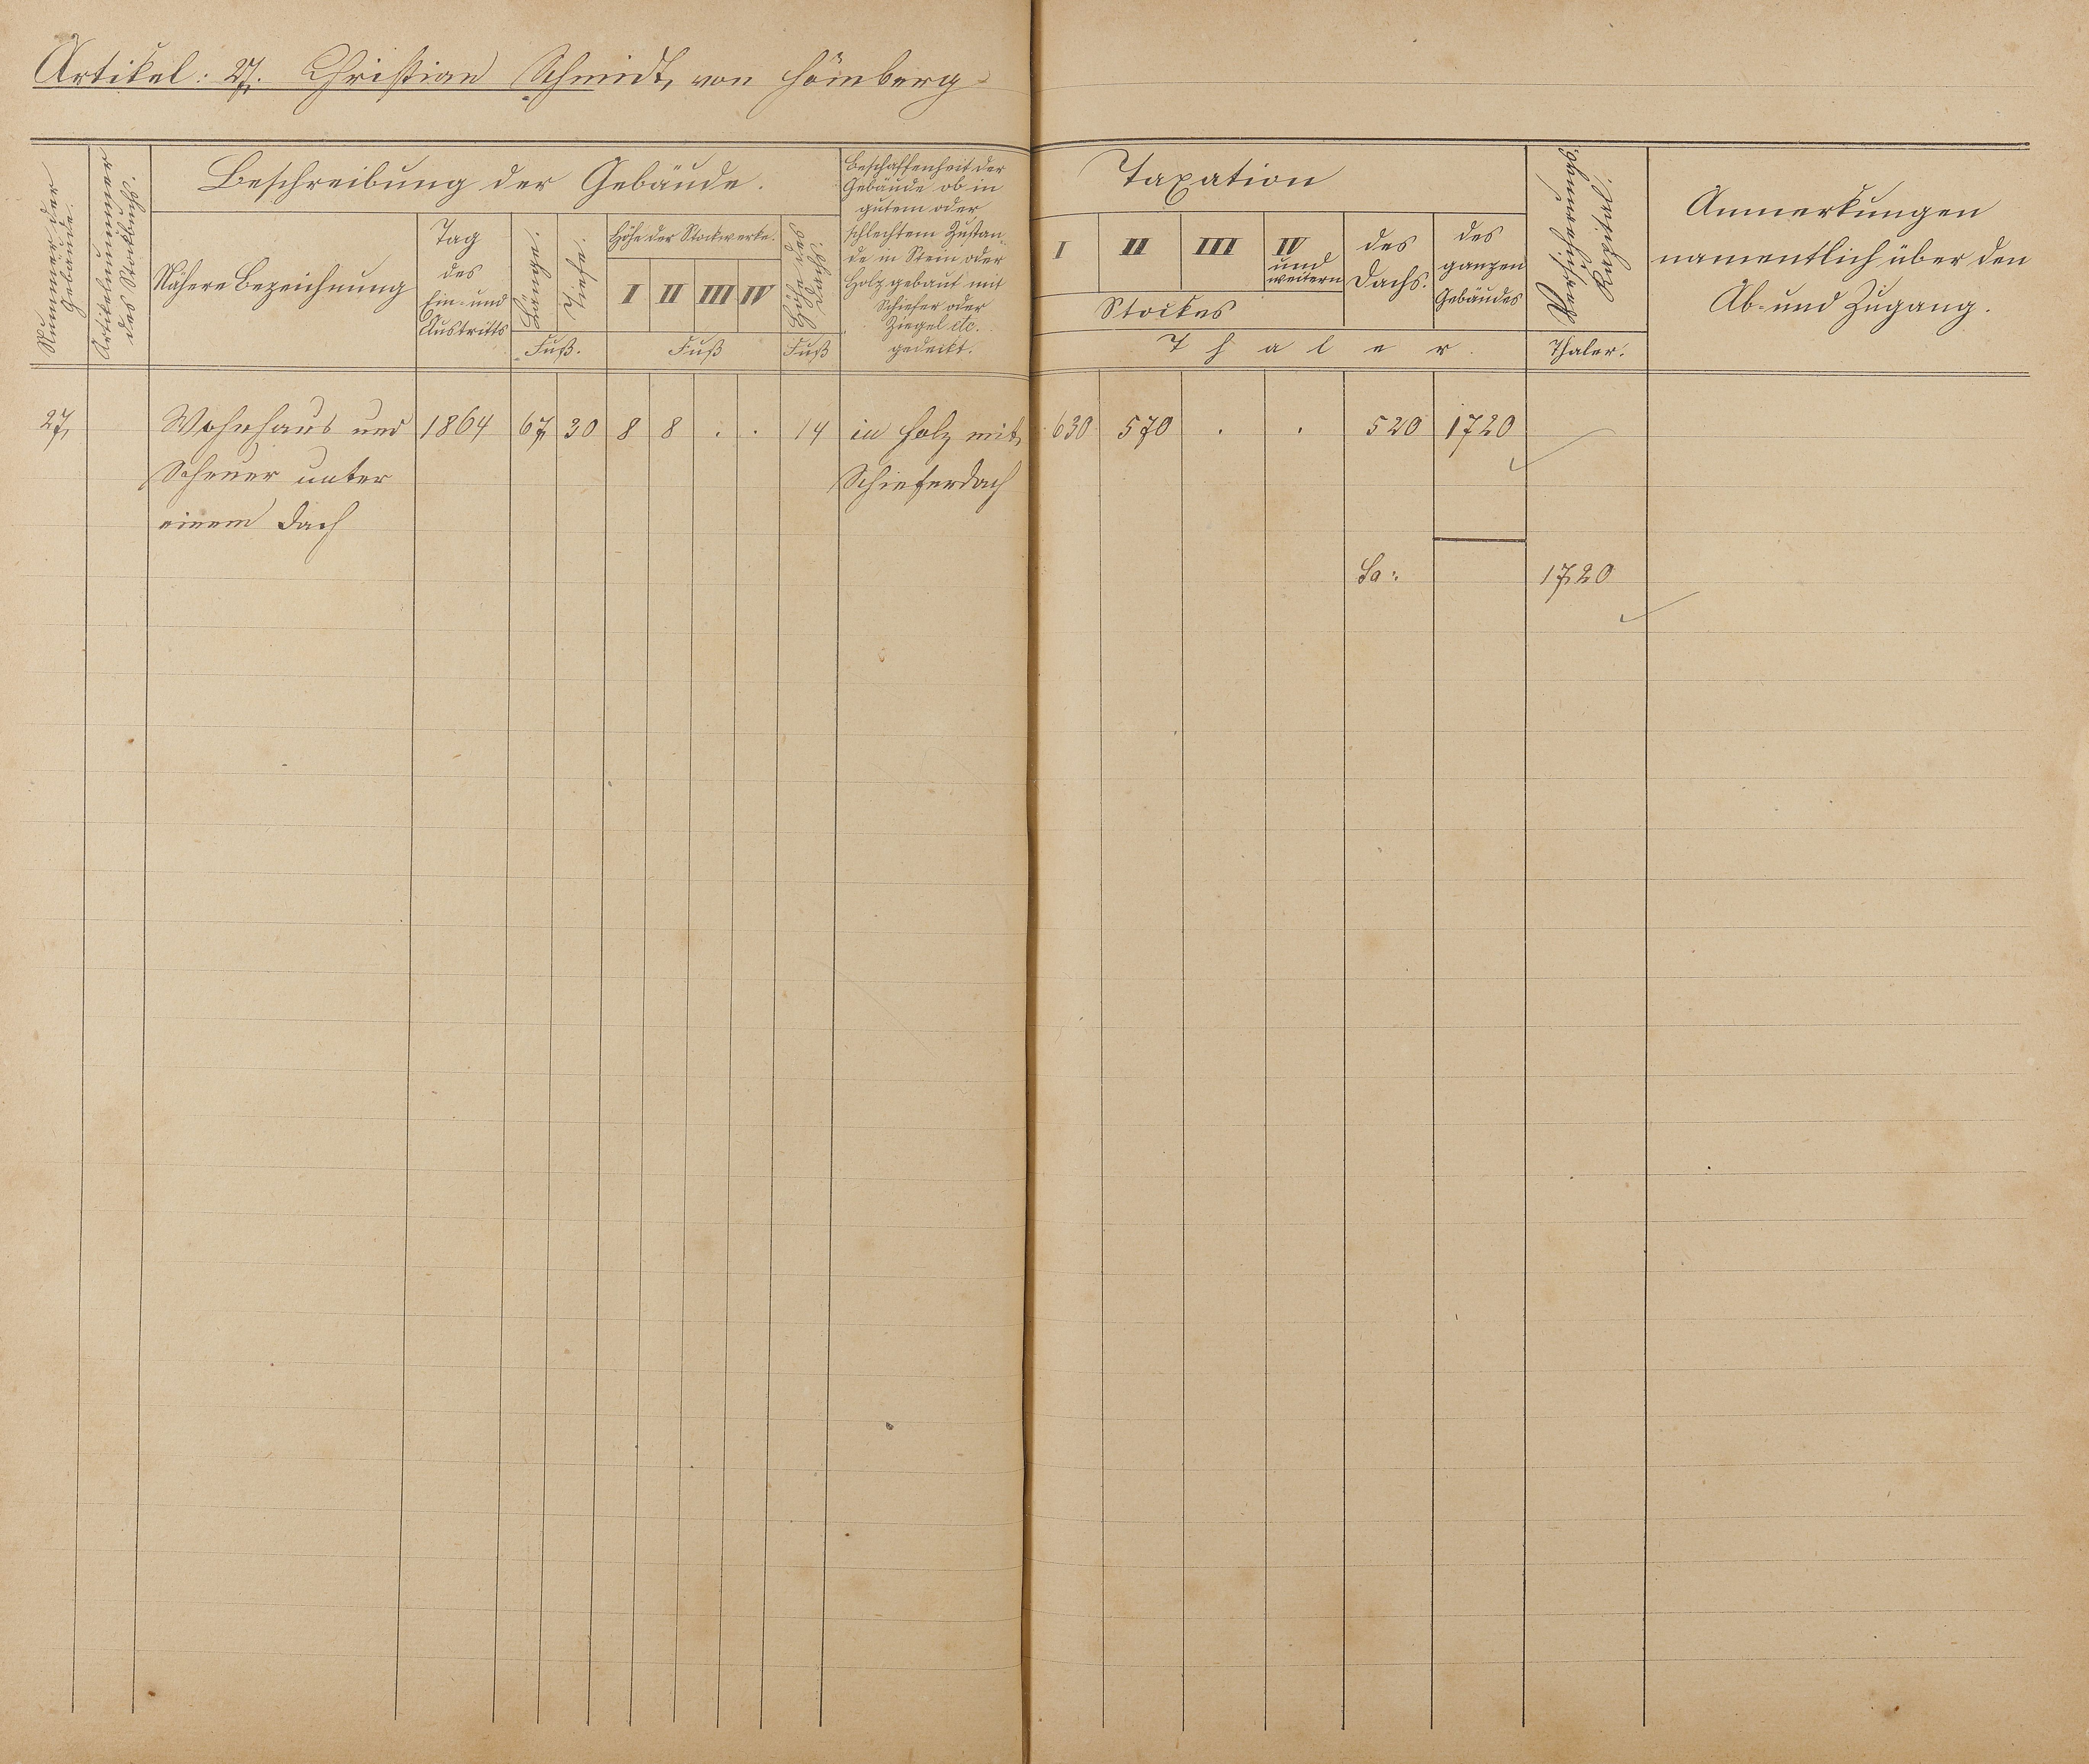 Artikel: 27. Christian Schmidt, von Hömberg
Nummer der
Gebäude.
Artikelnummer
des Stockbuchs.
Beschreibung der Gebäude.
Nähere Bezeichnung
Tag
des
Ein- und
Austritts
Länge.
Tiefe.
Fuß.
Höhe der Stockwerke.
I II III IV
Fuß
Höhe des
Dachs.
Fuß
Beschaffenheit der
Gebäude ob in
gutem oder
schlechtem Zustan-
de in Stein oder
Holz gebaut mit
Schiefer oder
Ziegel etc.
gedeckt.
Taxation
I II III IV
und
weitern
Stockes
des
Dachs.
des
ganzen
Gebäudes
Thaler.
Versicherungs
Kapital.
Thaler.
Anmerkungen
namentlich über den
Ab- und Zugang.
27, Wohnhaus und 1864 67 30 8 8 . . 14 in Holz mit 630 570 . . 520 1720
Scheuer unter Schieferdach
einem Dach
Sa: 1720